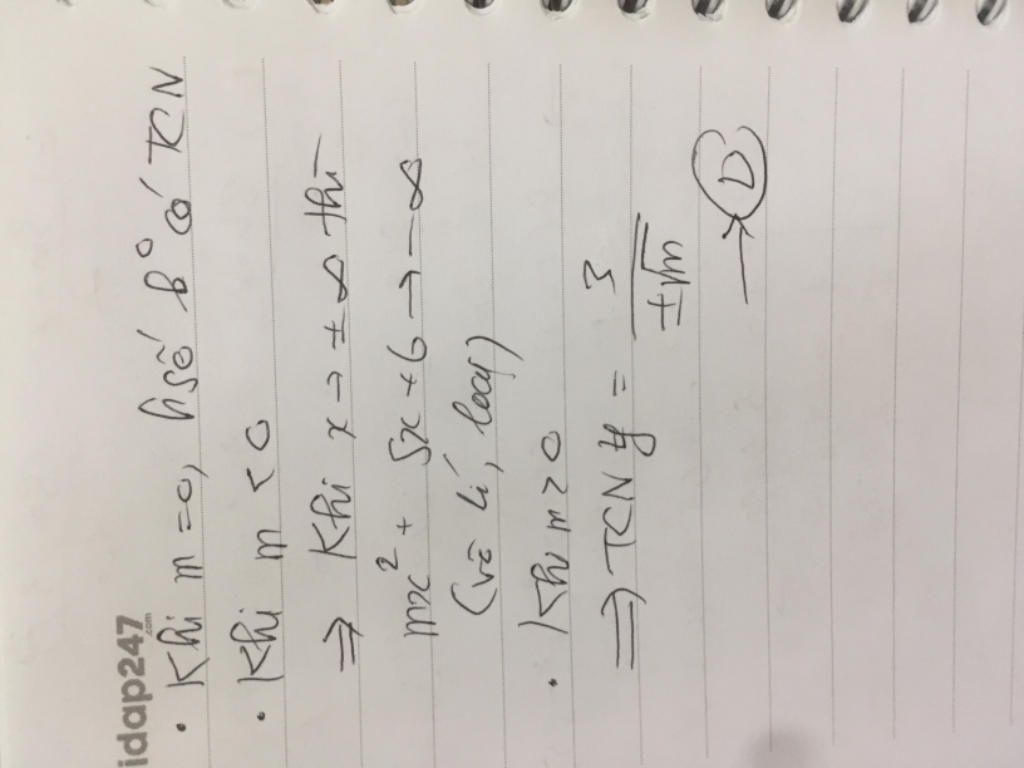 idap247
.com
• Khi m = 0, hsố k° có TCN
• Khi m < 0
⇒ Khi x → ± ∞ thì
mx² + 5x + 6 → - ∞
(vô lí, loại)
• Khi m > 0
⇒ TCN y = 3/±√m
→ D